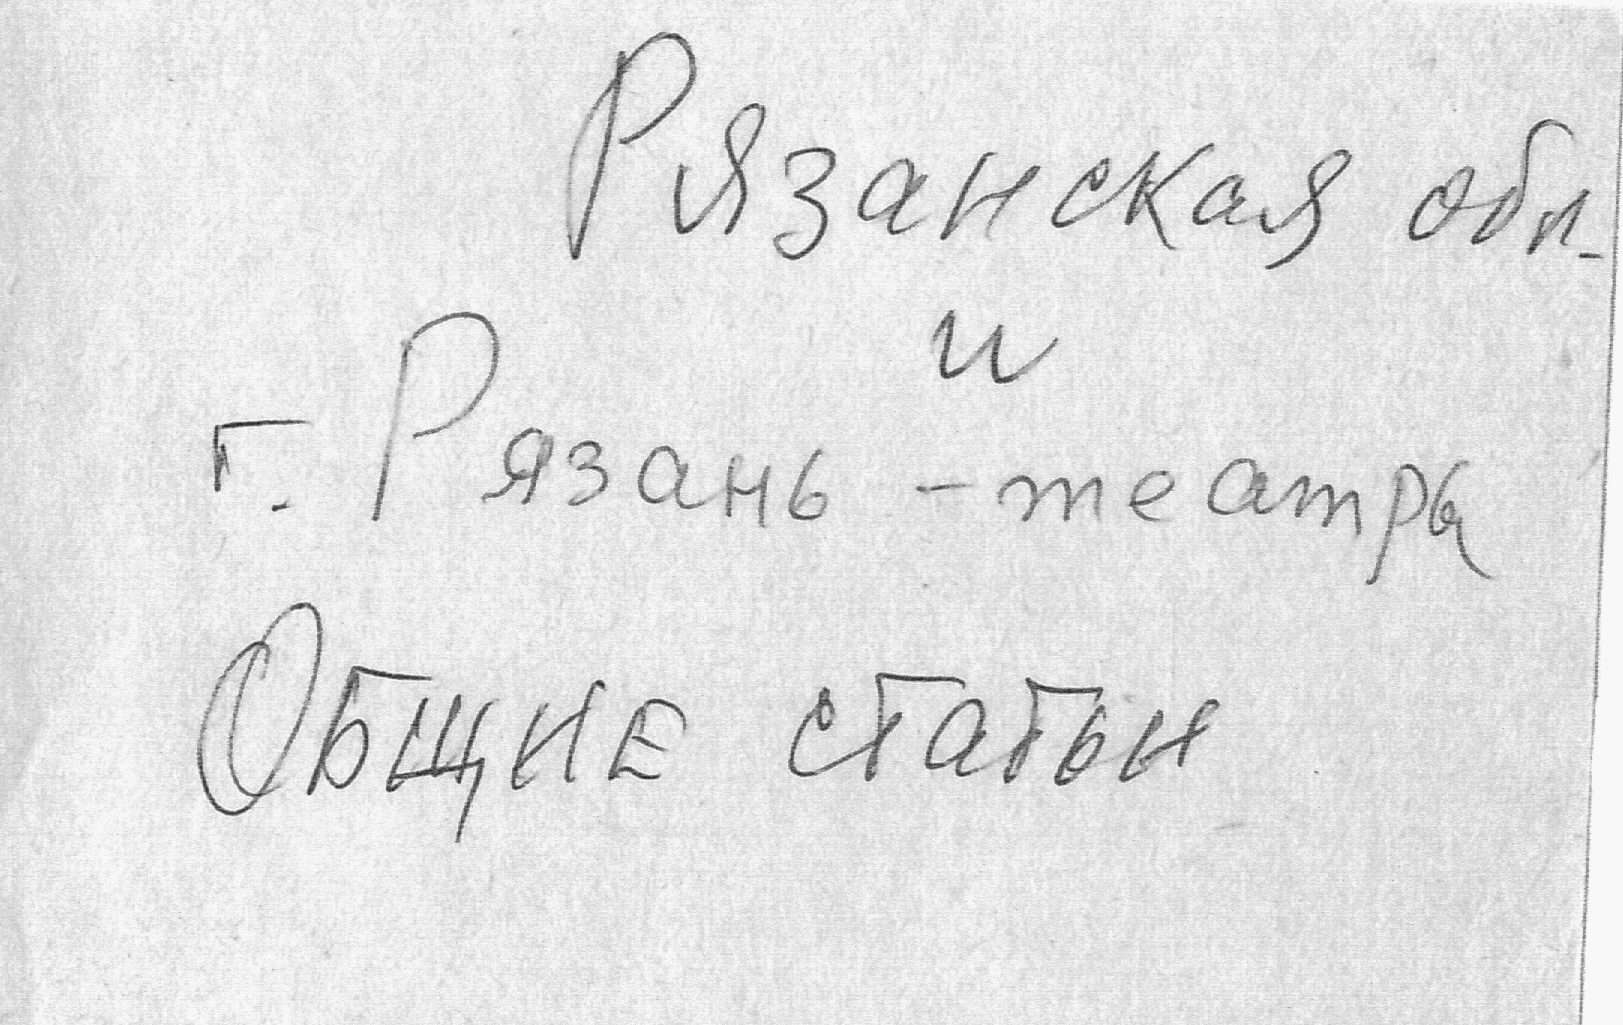 Рязанская обл.
и
г. Рязань - театры
Общие статьи